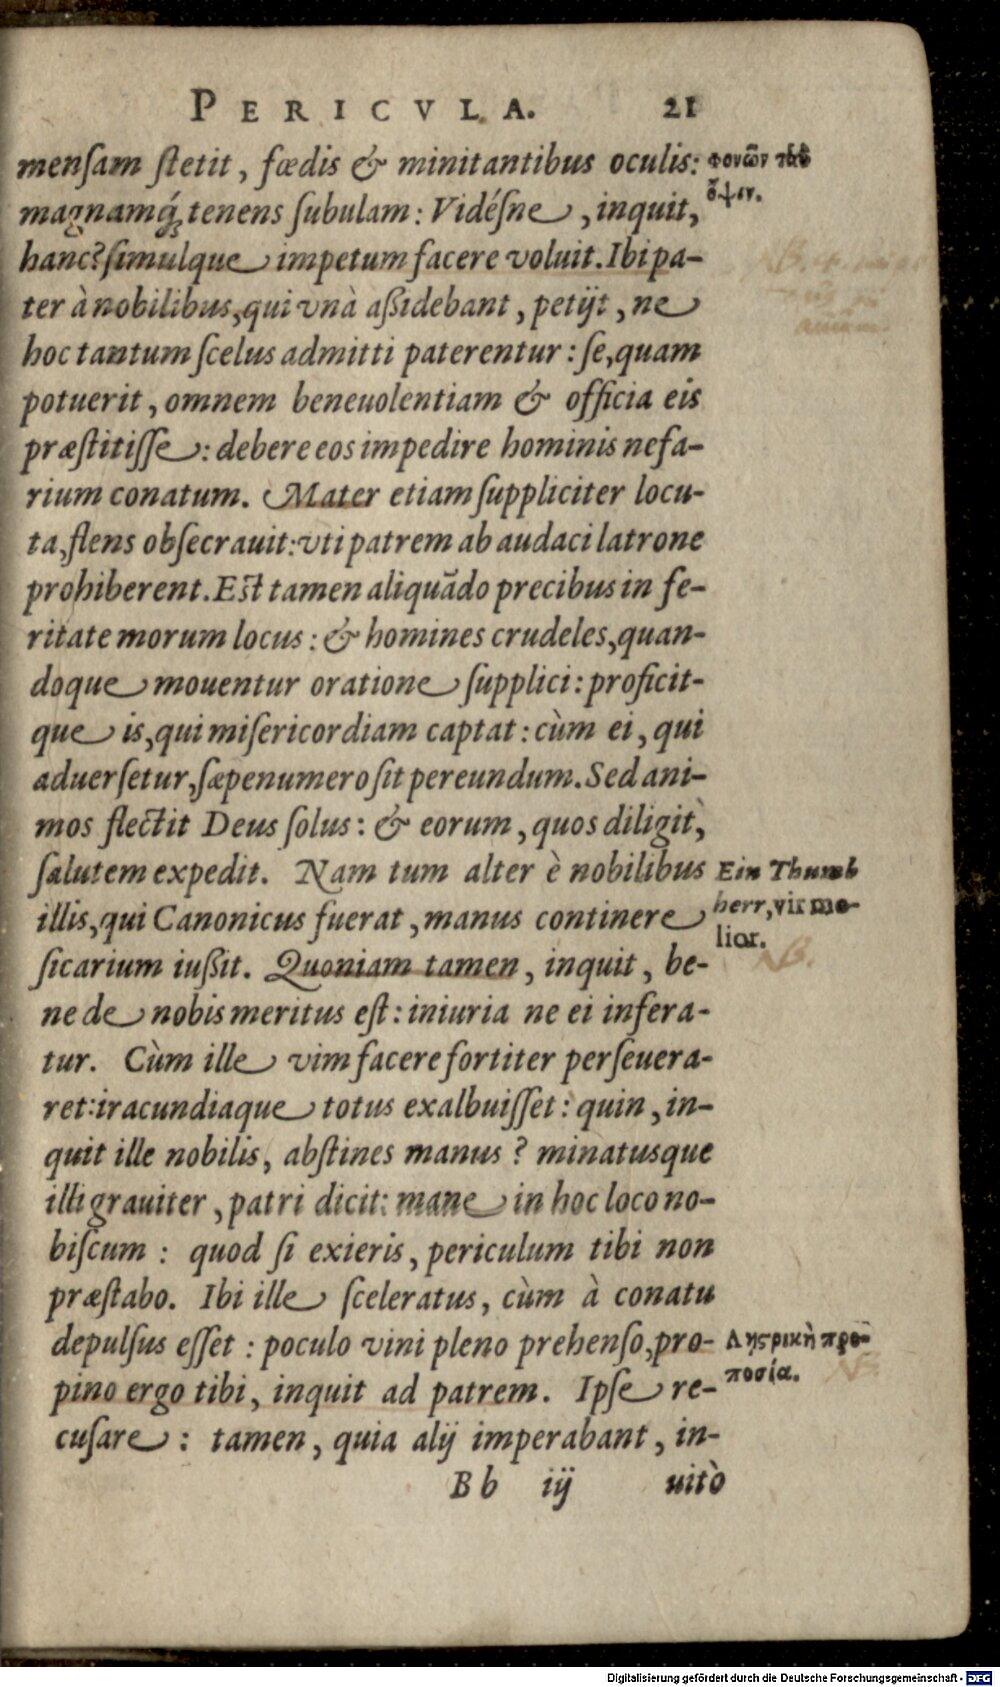 PERICVLA. 21
menſam ſtetit, fœdis & minitantibus oculis:
magnamq́; tenens ſubulam: Vidéſne, inquit,
hanc? ſimulque impetum facere voluit. Ibi pa-
ter à nobilibus, qui vnà aßidebant, petijt, ne
hoc tantum ſcelus admitti paterentur: ſe, quam
potuerit, omnem beneuolentiam & officia eis
præſtitiſſe: debere eos impedire hominis nefa-
rium conatum. Mater etiam ſuppliciter locu-
ta, flens obſecrauit: vti patrem ab audaci latrone
prohiberent. Eſt tamen aliquãdo precibus in fe-
ritate morum locus: & homines crudeles, quan-
doque mouentur oratione ſupplici: proficit-
que is, qui miſericordiam captat: cùm ei, qui
aduerſetur, ſæpenumero ſit pereundum. Sed ani-
mos flectit Deus ſolus: & eorum, quos diligit,
ſalutem expedit. Nam tum alter è nobilibus
illis, qui Canonicus fuerat, manus continere
ſicarium iußit. Quoniam tamen, inquit, be-
ne de nobis meritus eſt: iniuria ne ei infera-
tur. Cùm ille vim facere fortiter perſeuera-
ret: iracundiaque totus exalbuiſſet: quin, in-
quit ille nobilis, abſtines manus? minatusque
illi grauiter, patri dicit: mane in hoc loco no-
biſcum: quod ſi exieris, periculum tibi non
præſtabo. Ibi ille ſceleratus, cùm à conatu
depulſus eſſet: poculo vini pleno prehenſo, pro-
pino ergo tibi, inquit ad patrem. Ipſe re-
cuſare: tamen, quia alij imperabant, in-
Bb iij uitò
φονῶν
ὄψιν.
Ein Thumb
herr, vir me-
lior.
NB.
Λῃςρικὴ προ-
ποσία.
Digitalisierung gefördert durch die Deutsche Forschungsgemeinschaft - DFG